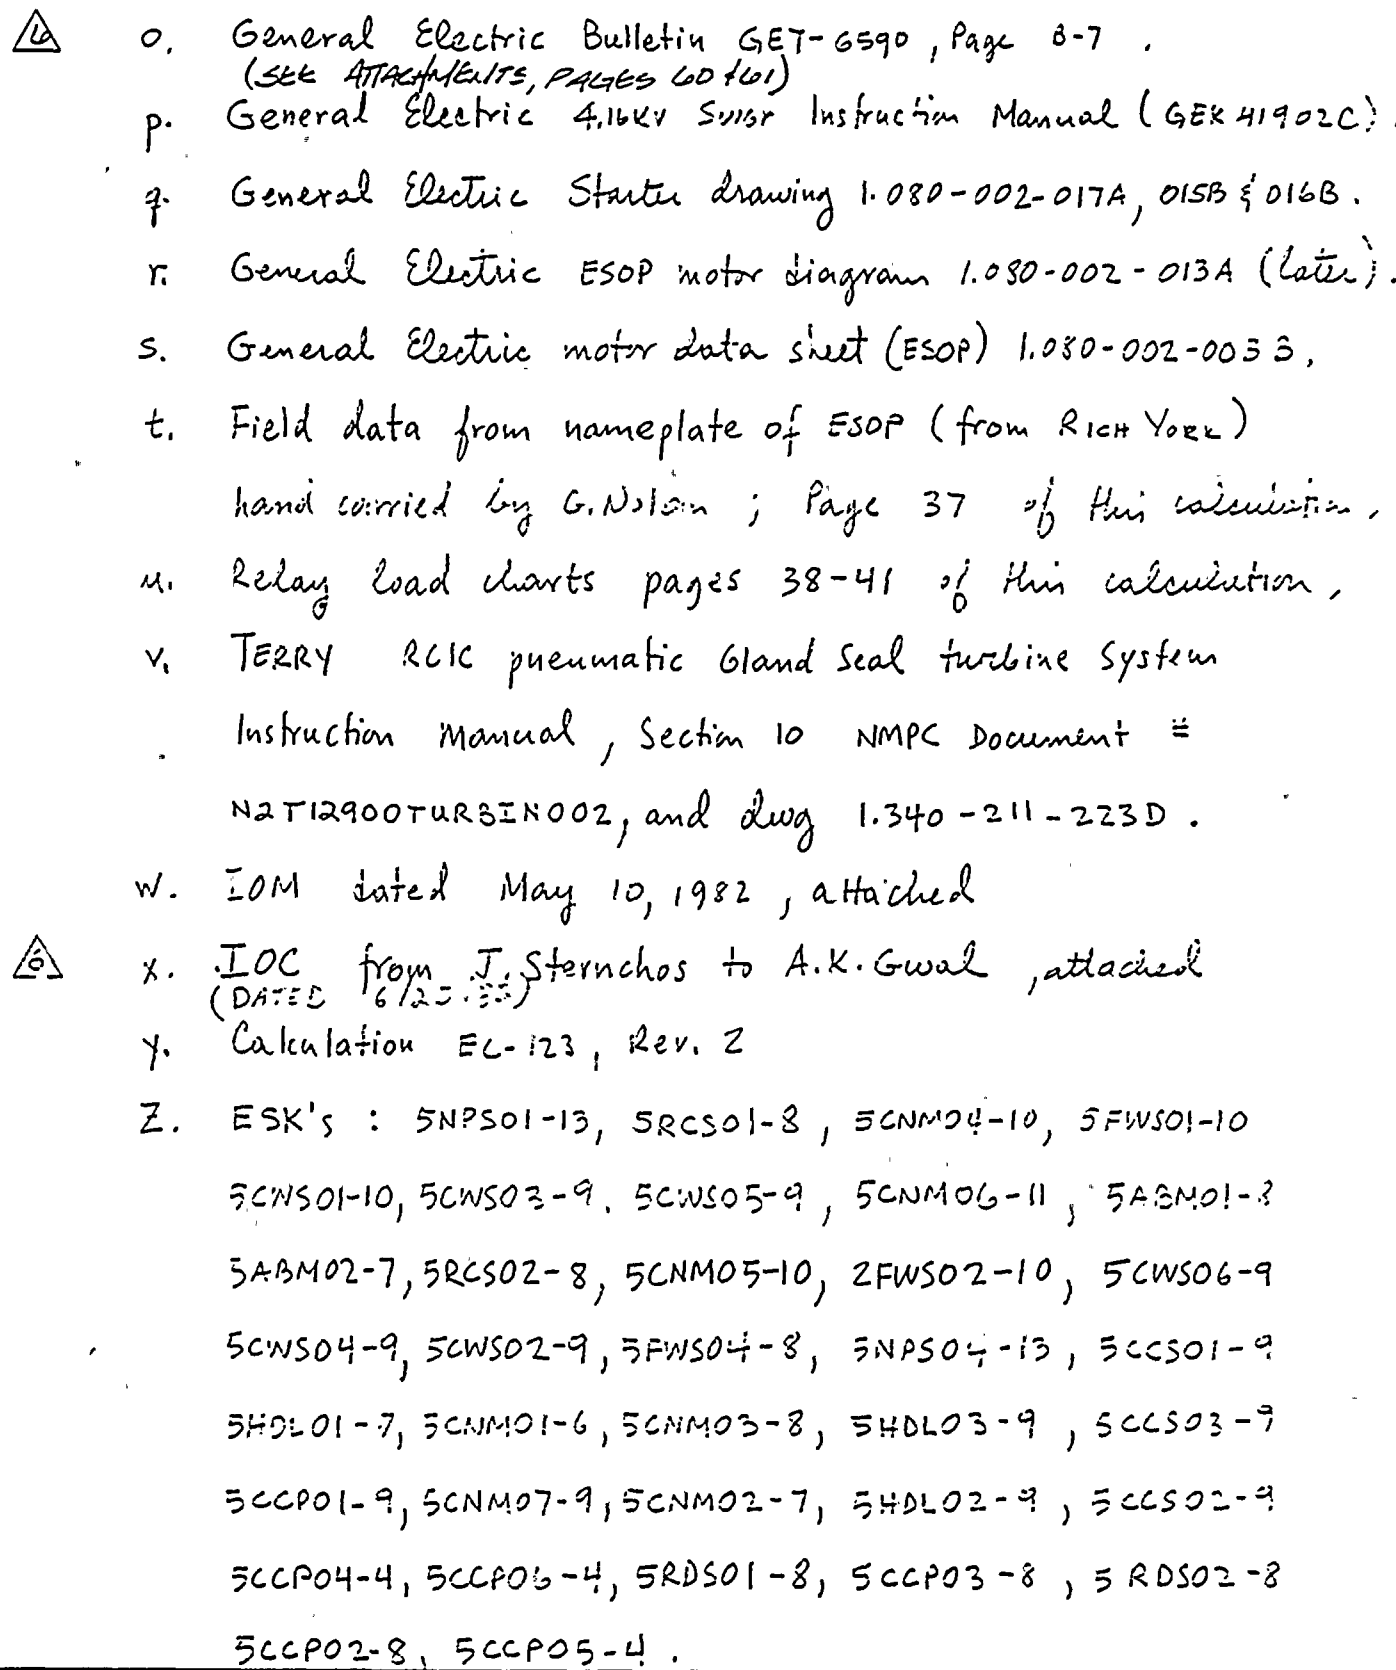 6 o. General Electric Bulletin GET-6590, Page B-7.
(SEE ATTACHMENTS, PAGES 60 & 61)
p. General Electric 4.16KV Swgr Instruction Manual (GEK 41902C).
q. General Electric Starter drawing 1.080-002-017A, 015B & 016B.
r. General Electric ESOP motor diagram 1.080-002-013A (later).
s. General Electric motor data sheet (ESOP) 1.080-002-003
t. Field data from nameplate of ESOP (from RICH YORK)
hand carried by G. Nolan ; Page 37 of this calculation,
u. Relay load charts pages 38-41 of this calculation,
v. TERRY RCIC pneumatic Gland Seal turbine System
Instruction Manual, Section 10 NMPC Document #
N2T12900TURBIN002, and dwg 1.340-211-223D.
w. IOM dated May 10, 1982, attached
6 x. IOC from J. Sternchos to A.K. Gwal, attached
(DATED
y. Calculation EC-123, Rev. 2
Z. ESK's : 5NPS01-13, 5RCS01-8, 5CNM04-10, 5FWS01-10
5CWS01-10, 5CWS03-9. 5CWS05-9, 5CNM06-11,
5ABM02-7, 5RCS02-8, 5CNM05-10, 2FWS02-10, 5CWS06-9
5CWS04-9, 5CWS02-9, 5FWS04-8, 5NPS04-13, 5CCS01-9
5HDL01-7, 5CNM01-6, 5CNM03-8, 5HDL03-9, 5CCS03-9
5CCP01-9, 5CNM07-9, 5CNM02-7, 5HDL02-9, 5CCS02-9
5CCP04-4, 5CCP06-4, 5RDS01-8, 5CCP03-8, 5RDS02-8
5CCP02-8, 5CCP05-4.